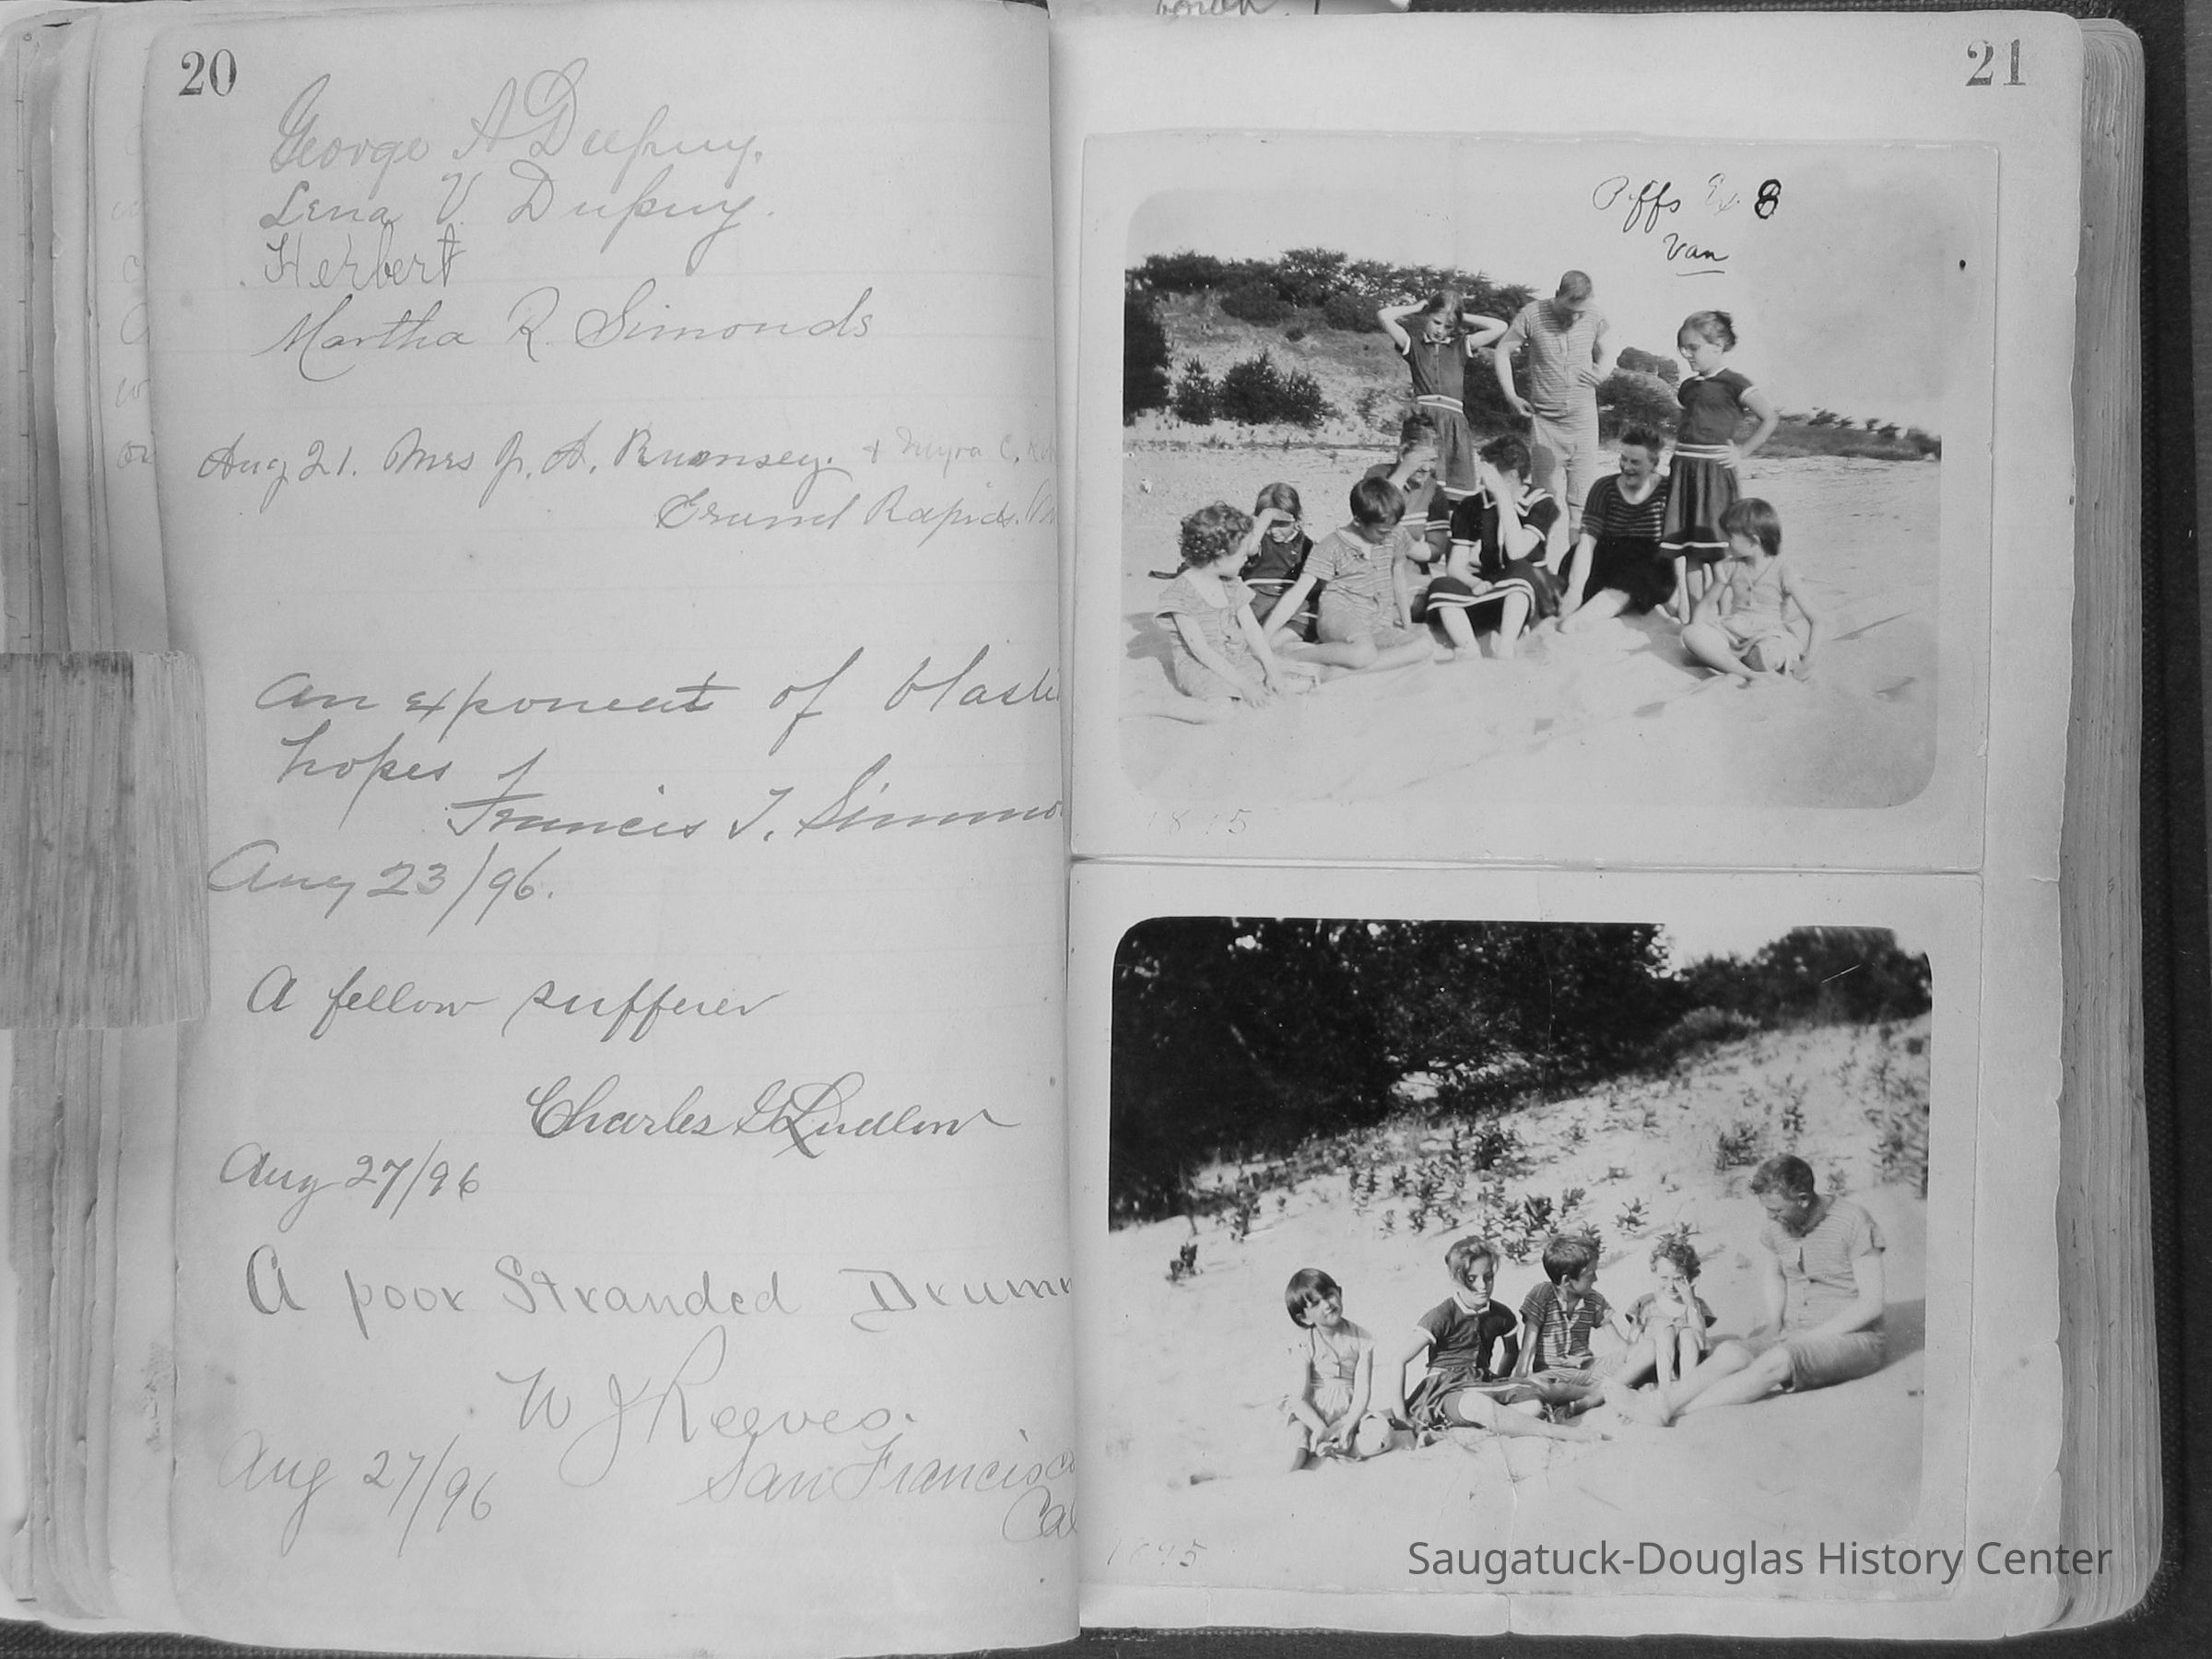 20
George A Dupuy.
Lena V. Dupuy.
Herbert
Martha R. Simonds
Aug 21. Mrs J. A. Rumsey. + Myra C.
Grand Rapids.
An exponent of
hopes
Francis T.
Aug 23/96.
A fellow sufferer
Charles G Ludlow
Aug 27/96
A poor Stranded
W J Reeves.
Aug 27/96 San Francisco
Cal
21
Piffs Ex 8
Van
1895
Saugatuck-Douglas History Center